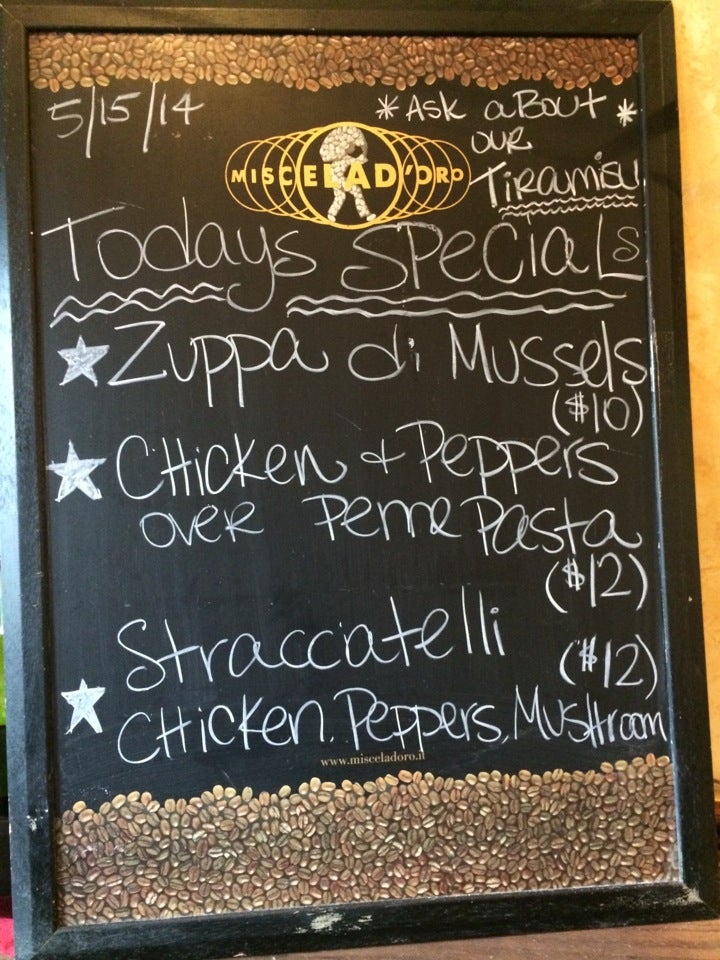 5/15/14
* Ask about *
our
Tiramisu
MISCELA D'ORO
Todays Specials
Zuppa di Mussels
($10)
Chicken + Peppers
over Penne Pasta
($12)
Stracciatelli
($12)
Chicken, Peppers, Mushroom
www.misceladoro.it